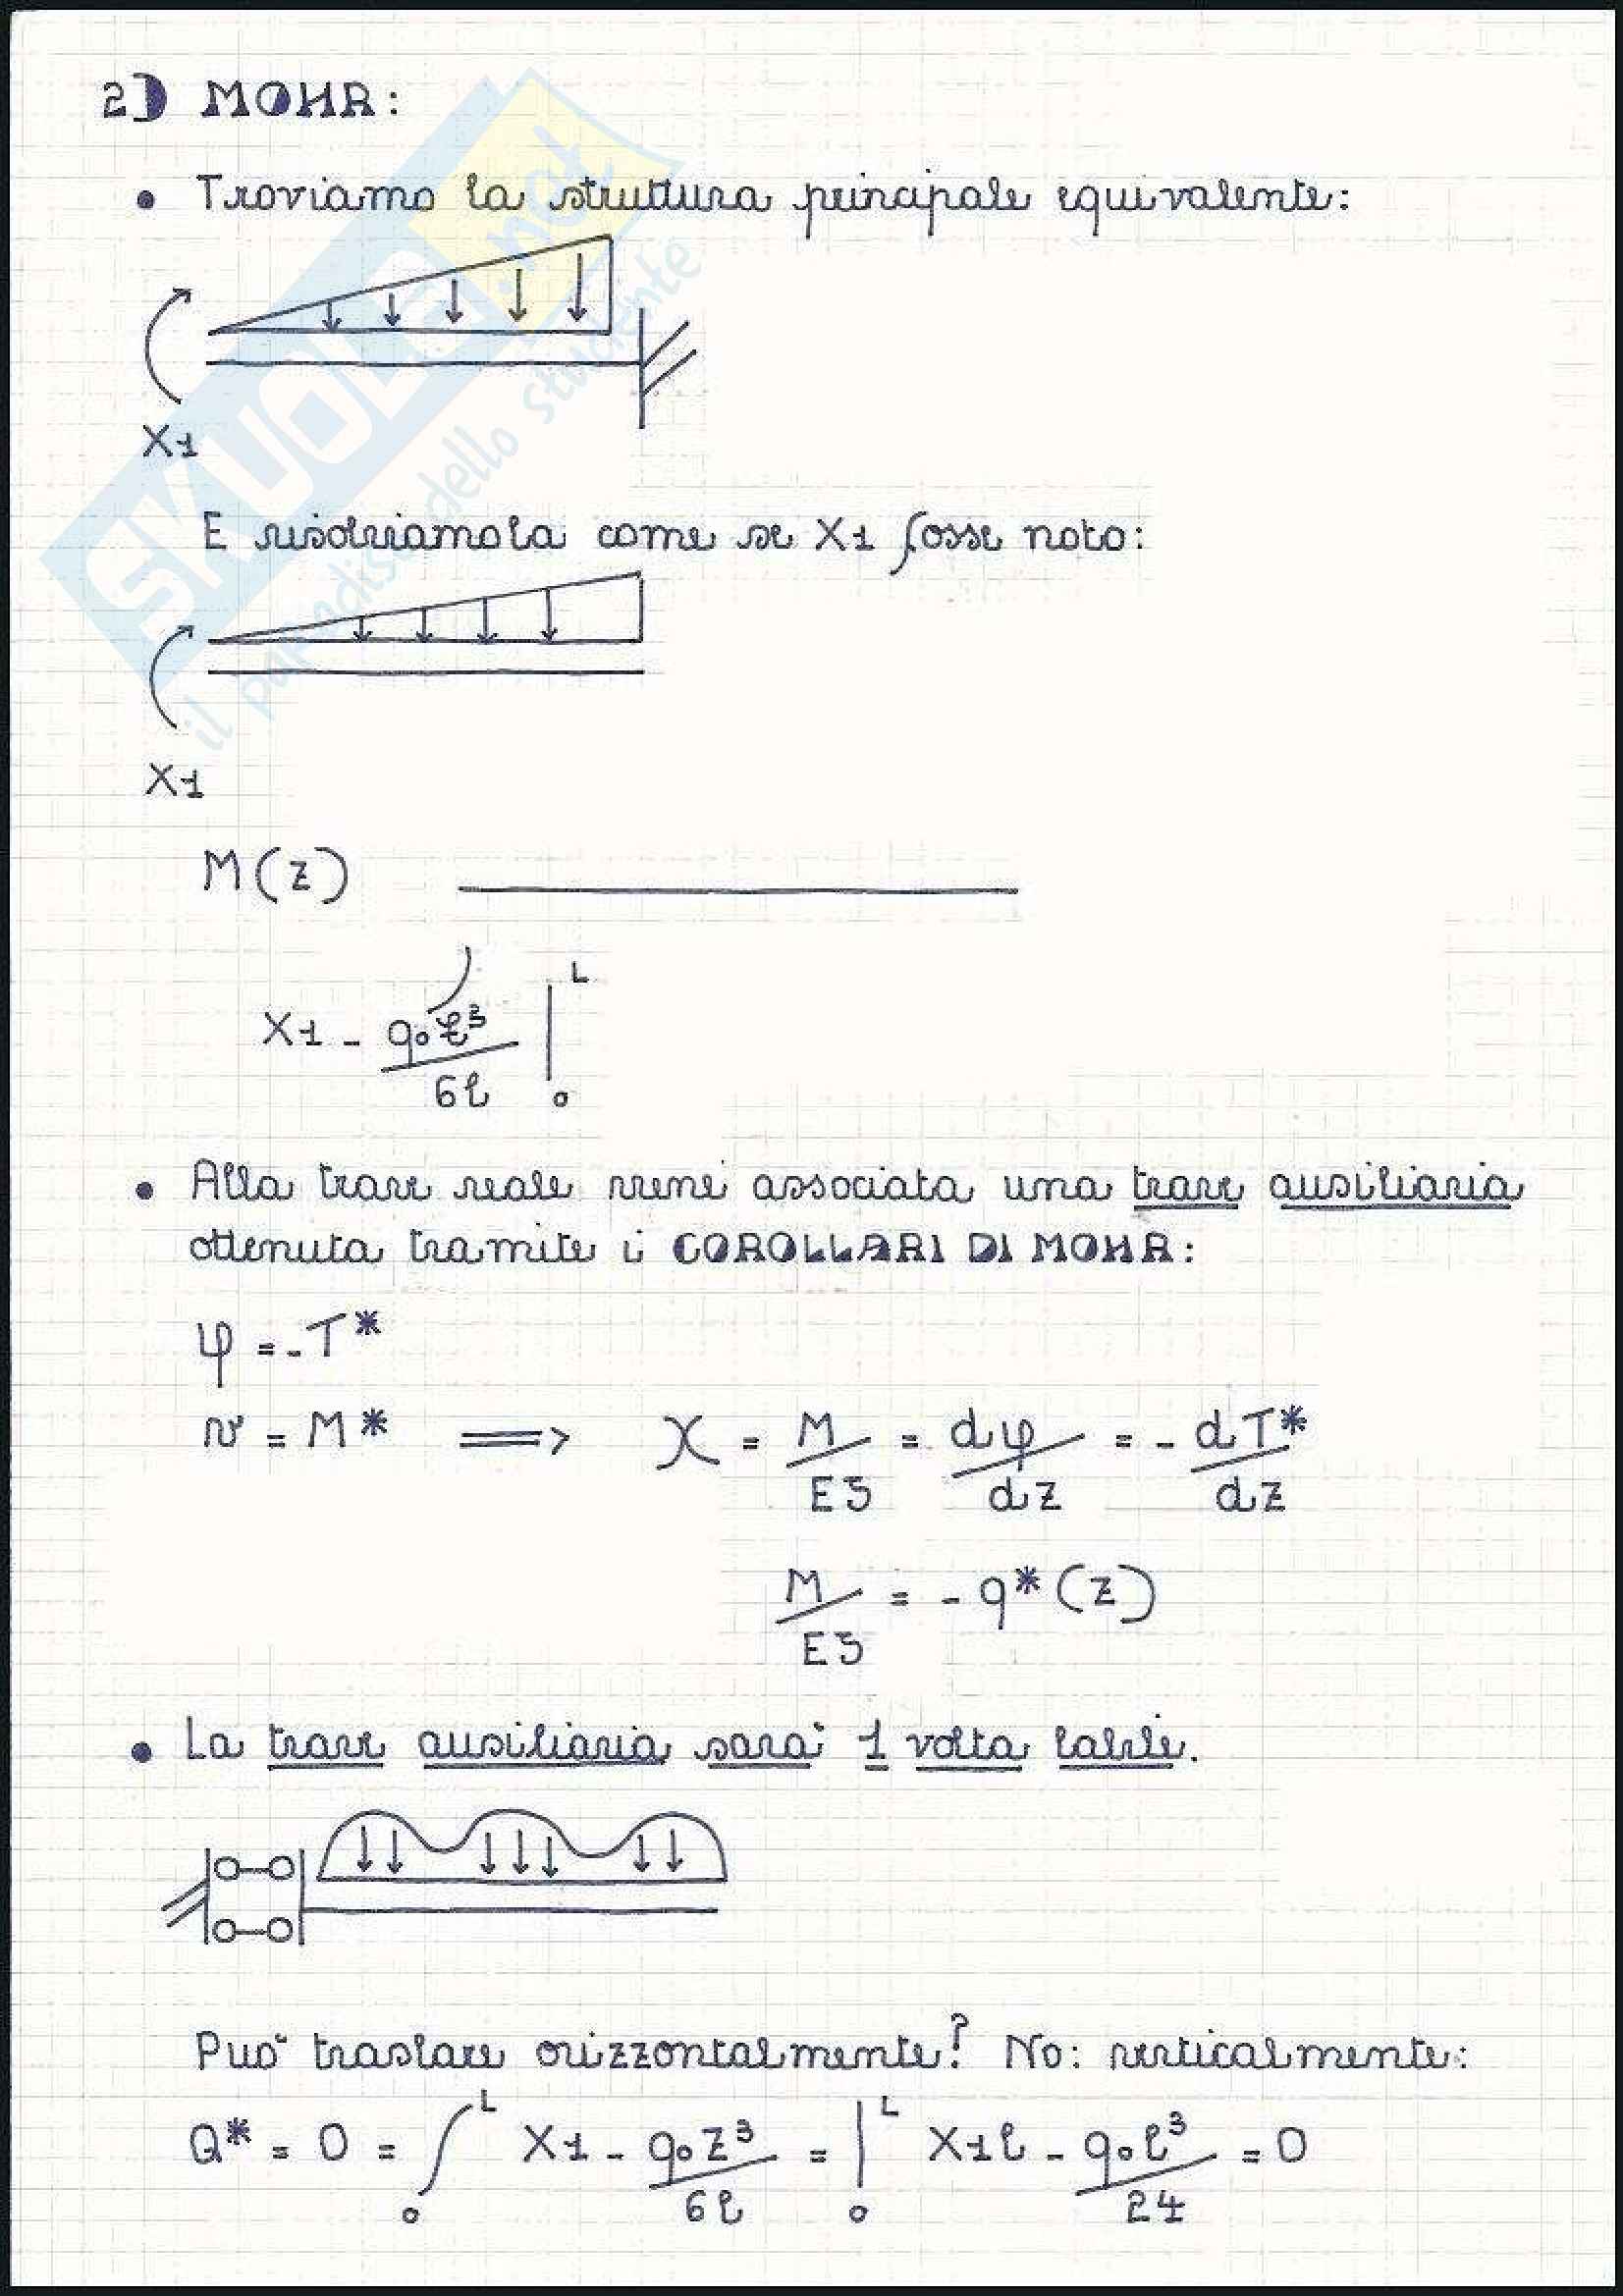 2) MOHR:
• Troviamo la struttura principale equivalente:
X1
E risolviamola come se X1 fosse noto:
X1
M(z)
X1 - q₀z³/6l |₀ᴸ
• Alla trave reale viene associata una trave ausiliaria
ottenuta tramite i COROLLARI DI MOHR:
φ = -T*
v = M* ⟹ χ = M/EJ = dφ/dz = - dT*/dz
M/EJ = - q*(z)
• La trave ausiliaria sarà 1 volta labile.
Può traslare orizzontalmente? No: verticalmente:
Q* = 0 = ∫₀ᴸ X1 - q₀z³/6l = |₀ᴸ X1l - q₀l³/24 = 0
SKUOLA.net
il paradiso dello studente